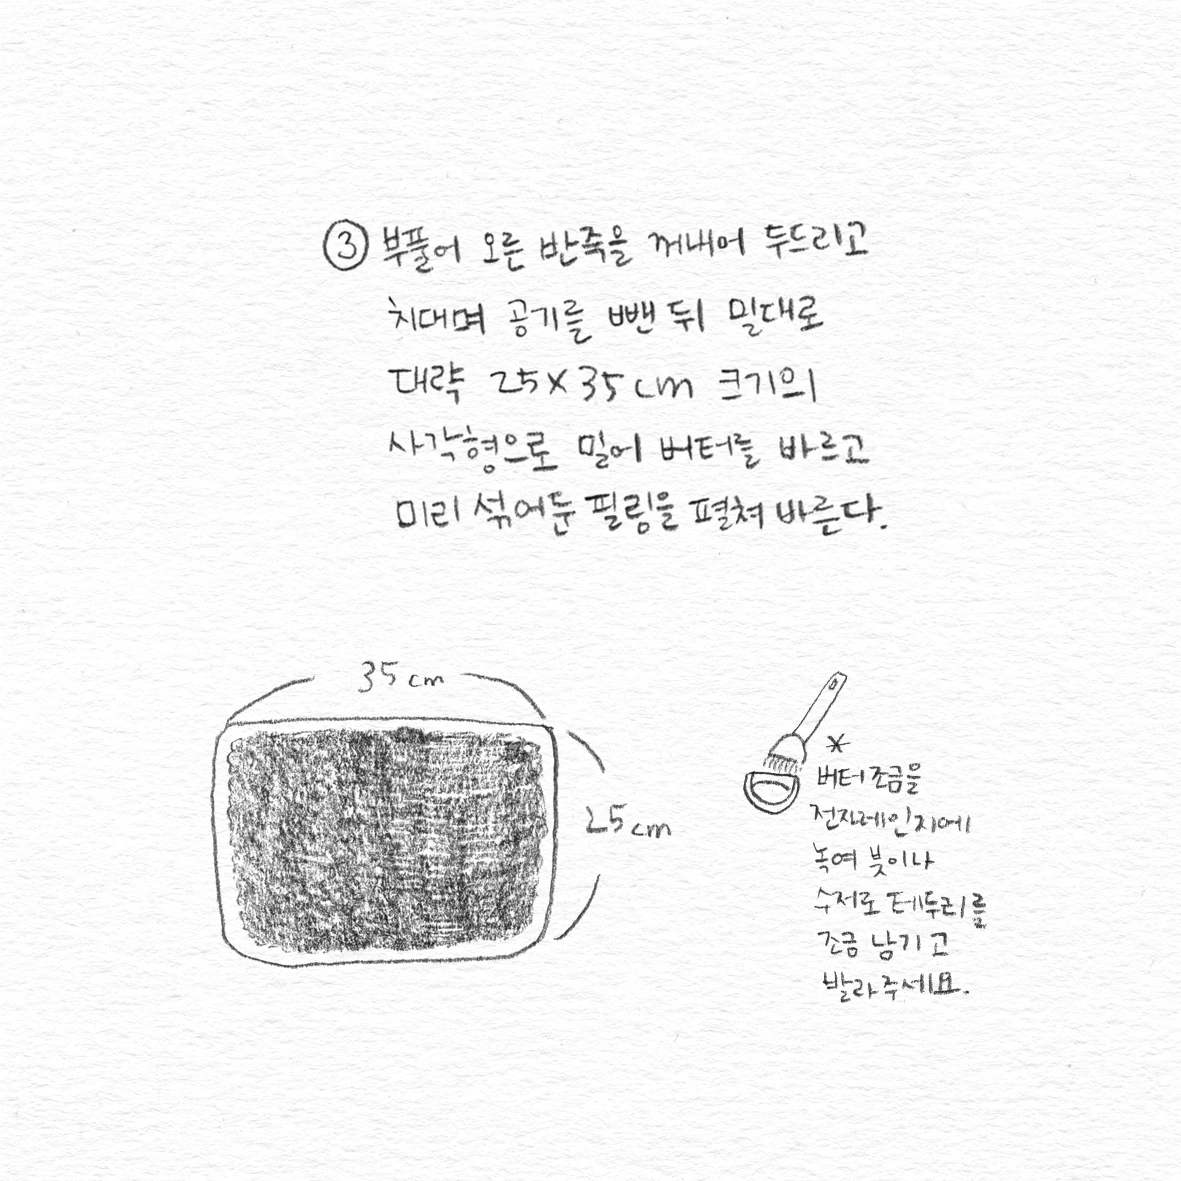 ③ 부풀어 오른 반죽을 꺼내어 두드리고
치대며 공기를 뺀 뒤 밀대로
대략 25×35cm 크기의
사각형으로 밀어 버터를 바르고
미리 섞어둔 필링을 펼쳐 바른다.
35cm
25cm
*
버터 조금을
전자레인지에
녹여 붓이나
수저로 테두리를
조금 남기고
발라주세요.